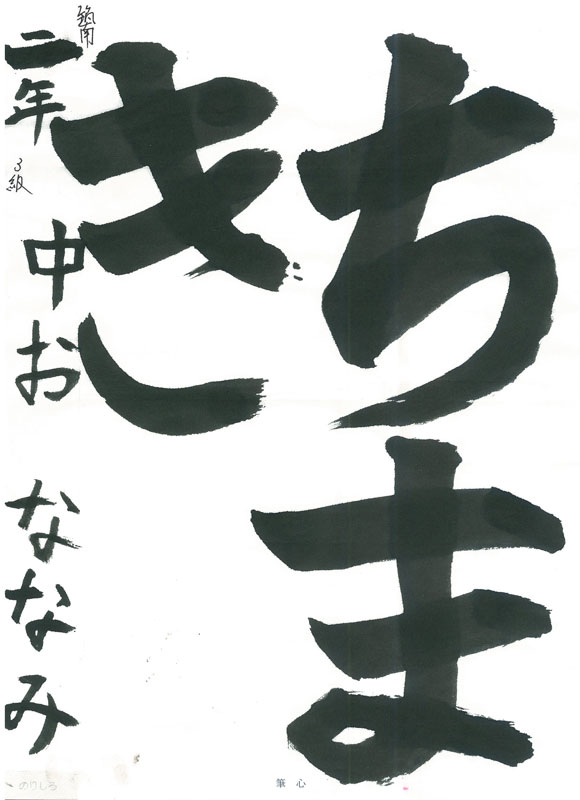 ちま
き
筑南
二年 3級 中お ななみ
筆心
のりしろ